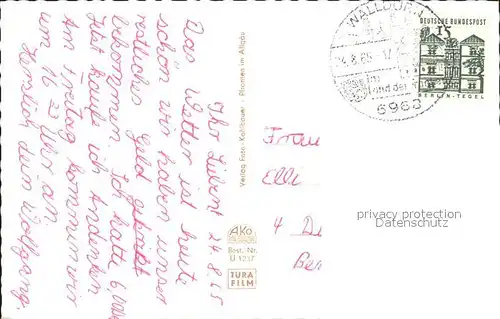 Ihr Lieben! 24.8.65
Das Wetter ist heute
schön wir haben unser
restliches Geld
bekommen. Ich hatte 6,00DM
Jetzt kaufe ich Andenken
Am Freitag kommen wir
um 16 23 Uhr an.
Herzlich dein Wolfgang.
Verlag Foto-Kohlbauer · Pfronten im Allgäu
AKO
Best.-Nr.
U 1237
TURA
FILM
WALLDÜRN
6968
DEUTSCHE BUNDESPOST
15
BERLIN-TEGEL
Elli
4
privacy protection
VARIOUS